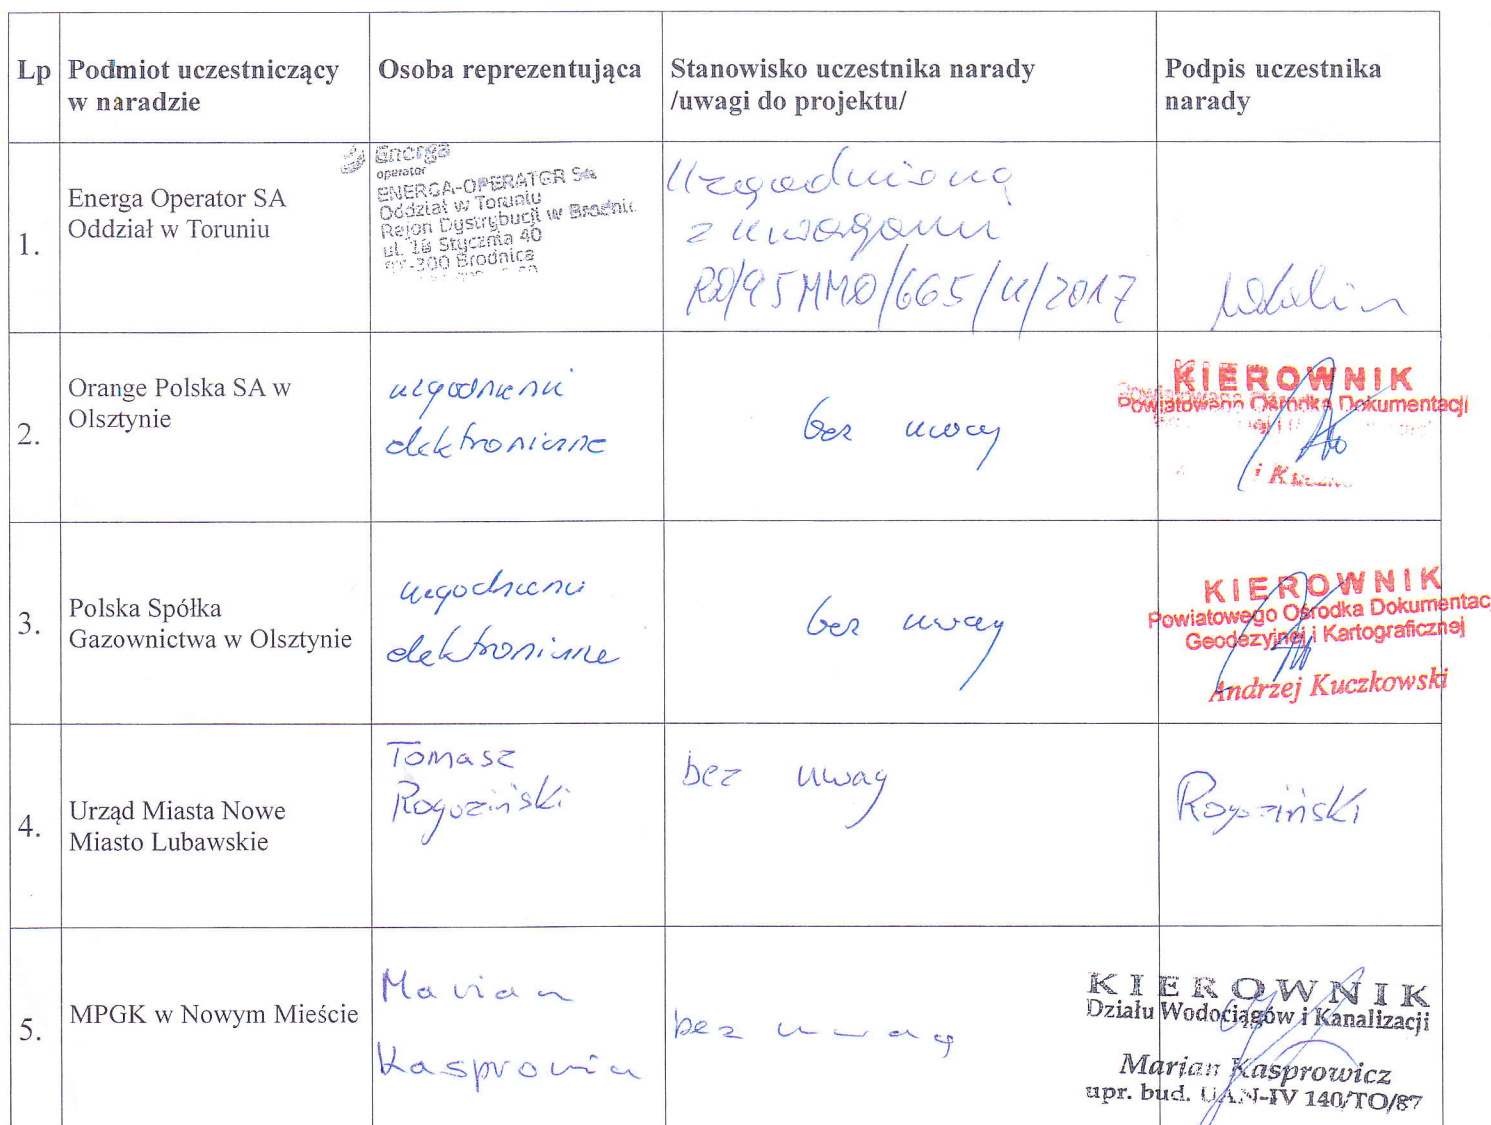 Lp
Podmiot uczestniczący
w naradzie
Osoba reprezentująca
Stanowisko uczestnika narady
/uwagi do projektu/
Podpis uczestnika
narady
1.
Energa Operator SA
Oddział w Toruniu
Energa
operator
ENERGA-OPERATOR SA
Oddział w Toruniu
Rejon Dystrybucji w Brodnic
ul. 18 Stycznia 40
87-300 Brodnica
z uwagami
2.
Orange Polska SA w
Olsztynie
elektroniczne
bez uwag
KIEROWNIK
Powiatowego Ośrodka Dokumentacji
3.
Polska Spółka
Gazownictwa w Olsztynie
elektroniczne
bez uwag
KIEROWNIK
Powiatowego Ośrodka Dokumentac
Geodezyjnej i Kartograficznej
Andrzej Kuczkowski
4.
Urząd Miasta Nowe
Miasto Lubawskie
Tomasz
Rogoziński
bez uwag
Rogoziński
5.
MPGK w Nowym Mieście
Marian
Kasprowicz
bez uwag
KIEROWNIK
Działu Wodociągów i Kanalizacji
Marian Kasprowicz
upr. bud. UAN-IV 140/TO/87